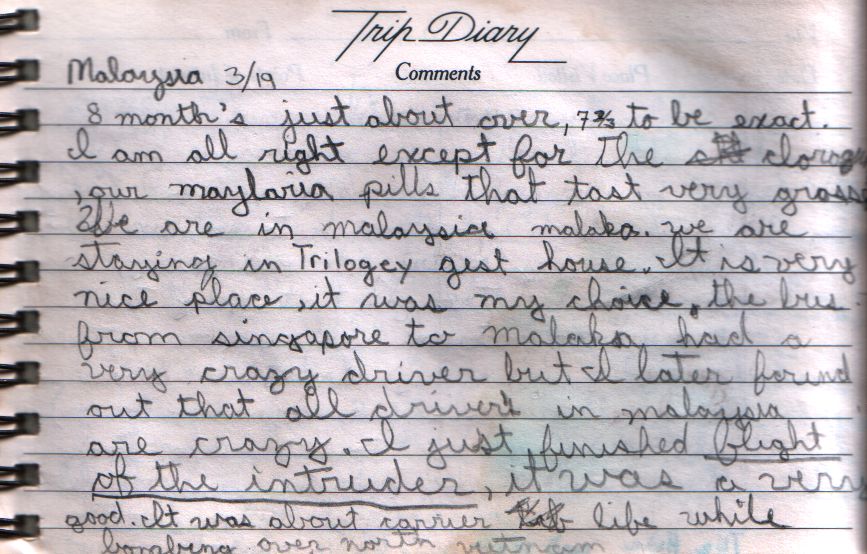 Trip Diary
Comments
Malaysia 3/19
8 month's just about over, 7 2/3 to be exact.
I am all right except for the cloroq
, our maylaria pills that tast very gross
We are in malaysia malaka. we are
staying in Trilogey gest house. It is very
nice place, it was my choice. the bus
from singapore to malaka had a
very crazy driver but I later found
out that all driver's in malaysia
are crazy. I just finished flight
of the intruder, it was a very
good. It was about carrier life while
bombing over north vietnam